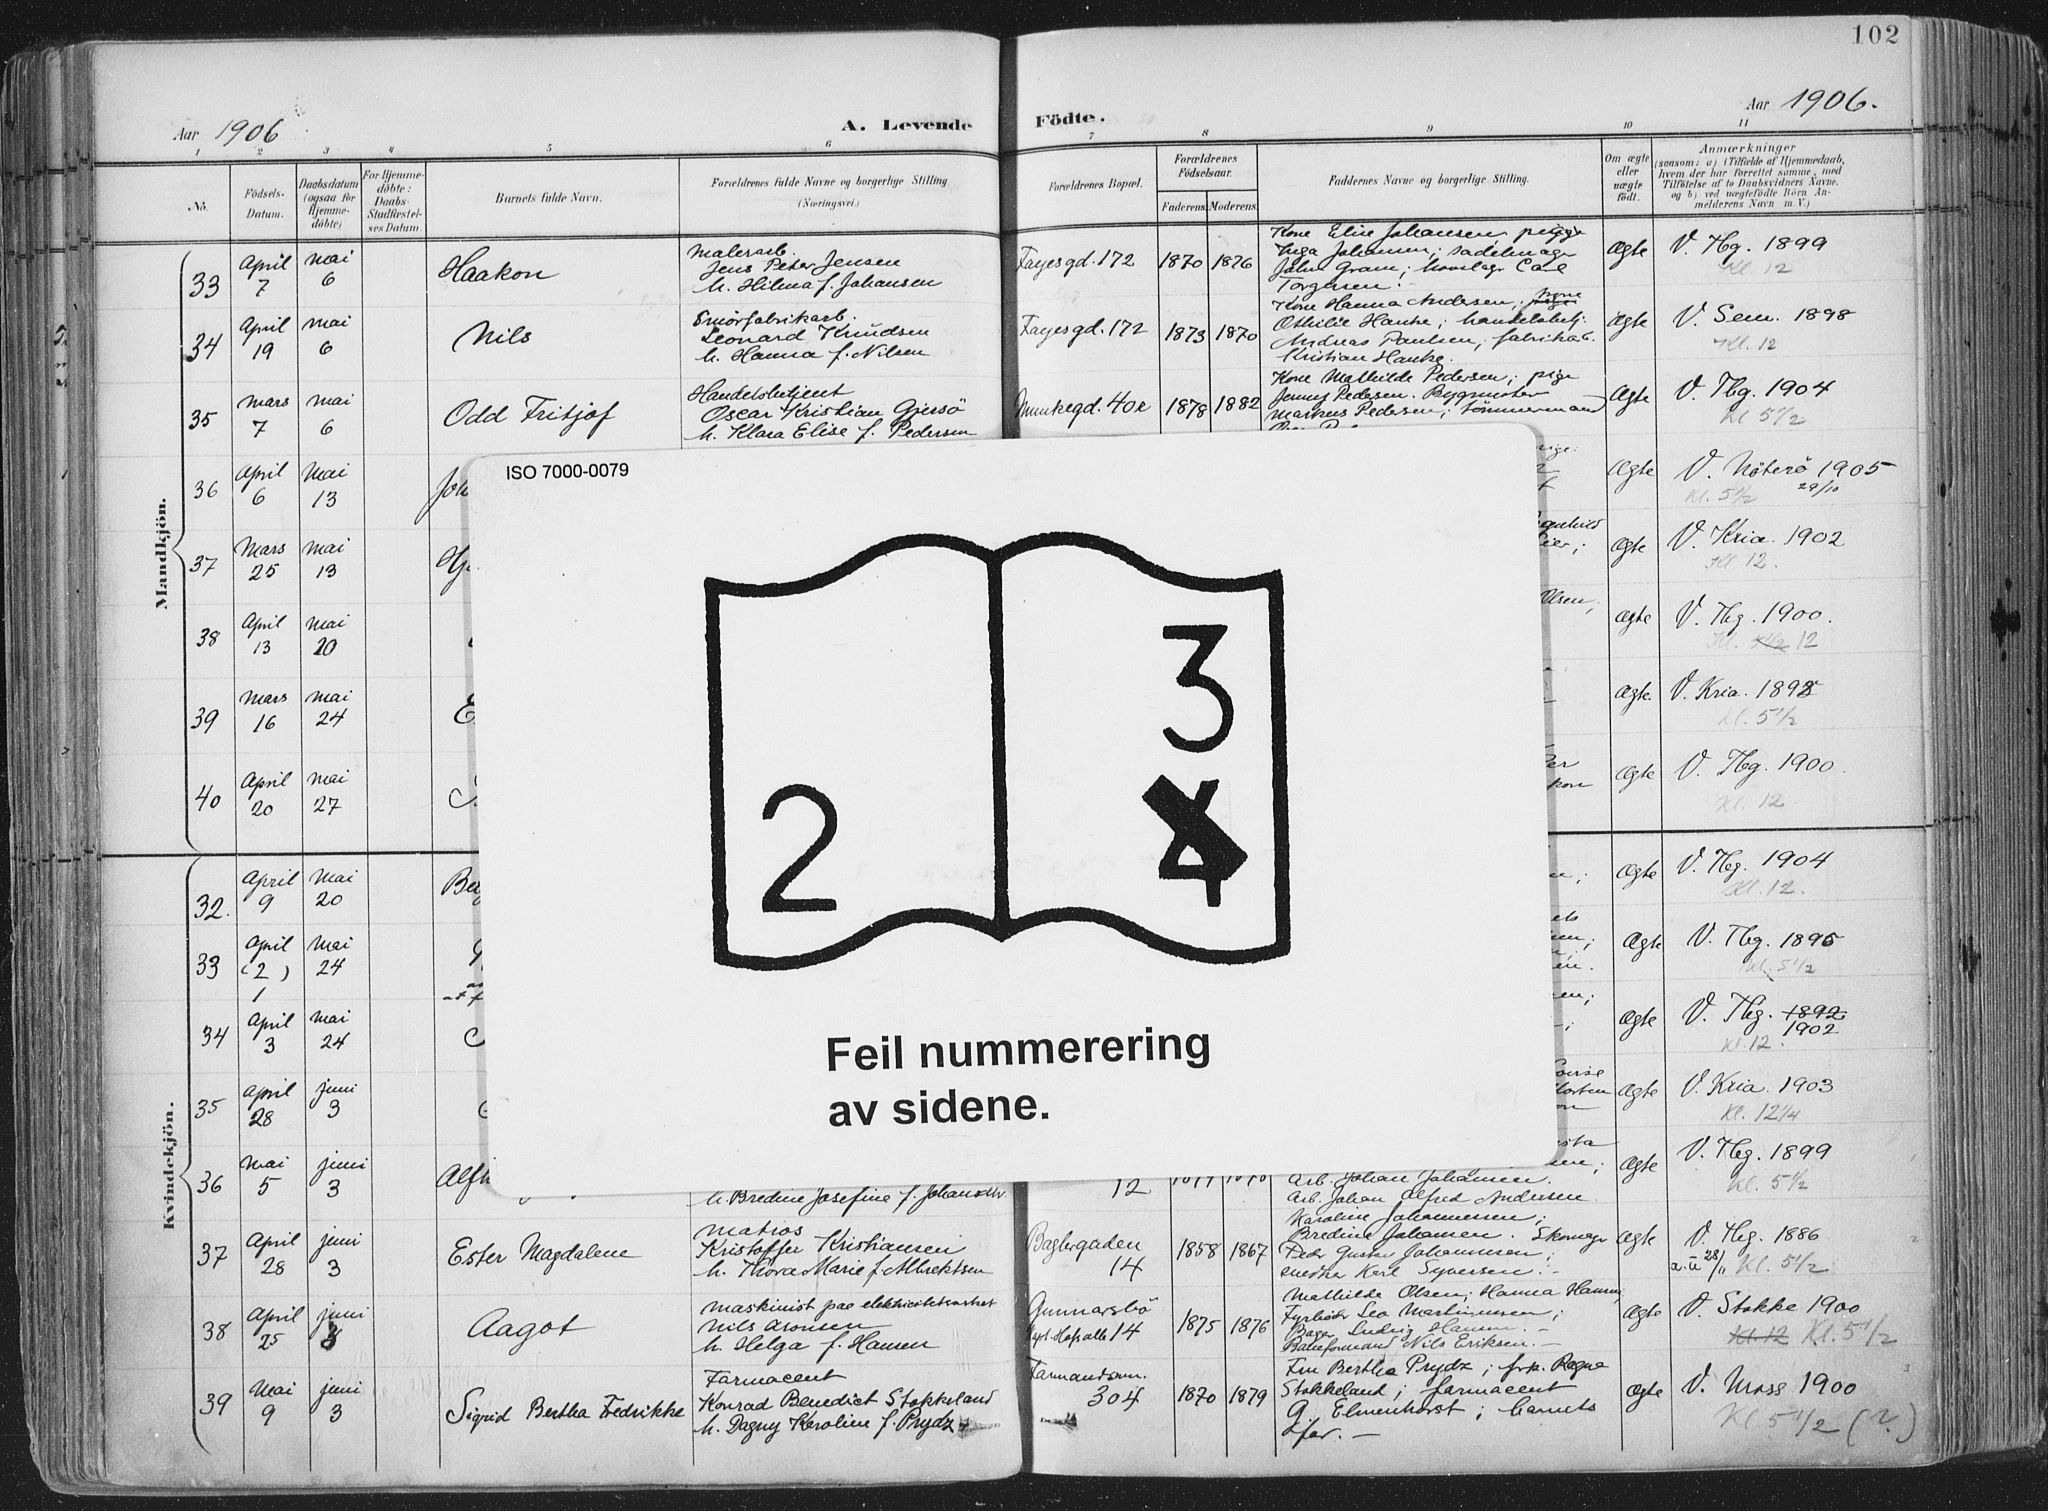 102
Aar 1906
A. Levende
Födte.
Aar 1906.
1 2 3 4 5 6 7 8 9 10 11
No.
Födsels-
Datum.
Daabsdatum
(ogsaa for
Hjemme-
döbte)
For Hjemme-
döbte:
Daabs-
Stadfæstel-
ses Datum.
Barnets fulde Navn.
Forældrenes fulde Navne og borgerlige Stilling.
(Næringsvei.)
Forældrenes Bopæl.
Forældrenes
Födselsaar.
Faderens Moderens.
Faddernes Navne og borgerlige Stilling.
Om ægte
eller
uægte
födt.
Anmærkninger
(saasom: a) i Tilfælde af Hjemmedaab,
hvem der har forrettet samme, med
Tilföielse af to Daabsvidners Navne,
og b) ved uægtefödte Börn An-
melderens Navn m. V.)
Mandkjön.
33 April 7 mai 6 Haakon
Malerarb.
Jens Peter Jensen
h. Hilma f. Johansen
Fayesgd. 172 1870 1876
Kone Elise Johansen, pige
Inga Johansen; sadelmager
John Gram;
Torgersen.
Ægte V. Tbg. 1899
Kl 12
34 April 19 mai 6 Nils
Smörfabrikarb.
Leonard Knudsen
h. Hanna f. Nilsen
Fayesgd. 172 1873 1870
Kone Hanna Andersen;
Othilie Hanke; handelsbetj.
Andreas Paulsen; fabrikab.
Kristian Hanke.
Ægte V. Sem. 1898
Kl. 12
35 Mars 7 mai 6 Odd Fritjof
Handelsbetjent
Oscar Kristian Gjersö
h. Klara Elise f. Pedersen
Munkegd. 40 1878 1882
Kone Mathilde Pedersen; pige
Jenny Pedersen. Bygmester
Markus Pedersen; tömmermand
Ægte V. Tbg. 1904
Kl 5 1/2
36 April 6 Mai 13 Joh
Ægte V. Nöterö 1905
Kl. 5 1/2 29/10
37 Mars 25 mai 13 Hj
Ægte V. Kria. 1902
Kl 12.
38 April 13 Mai 20
Olsen;
Ægte V. Tbg. 1900.
Kl. 5 1/2 12
39 Mars 16 mai 24 E
Ægte. V. Kria. 1898
Kl. 5 1/2
40 April 20 mai 27
Ægte V. Tbg. 1900.
Kl. 12
ISO 7000-0079
3
2 4
Feil nummerering
av sidene.
Kvindekjön.
32. April 9 Mai 20
Ægte V. Tbg. 1904
Kl. 12.
33 April (2) 1 Mai 24
Ægte V. Tbg. 1896
Kl. 5 1/2
34 April 3 Mai 24
Ægte V. Tbg. 1892
1902
Kl. 12.
35 April 28 juni 3
Ægte V. Kria. 1903
Kl. 12 1/4
36 Mai 5 juni 3 Alf
h. Bredine Josefine f. Johansen
12
Arb. Johan Johansen.
Arb. Johan Alfred Andersen
Ægte V. Tbg. 1899
Kl. 5 1/2
37 April 28 juni 3 Ester Magdalene
Matros
Kristoffer Kristiansen
h. Thora Marie f. Albrektsen
Baglergaden
14 1858 1867
Karoline Johannessen;
Bredine Johansen. Skomager
Peder Gustav Johannesen;
snedker Karl Syversen.
Ægte V. Tbg. 1886
Kl. 5 1/2
38 April 25 juni 3 Aagot
Maskinist paa elektricitetsverket
Nils Aronsen
h. Helga f. Hansen
Gunnarsbö
14 1875 1876
Mathilde Olsen; Hanna Hansen;
Fyrböter Leo Martinussen;
Bager Ludvig Hansen.
Baneformand Nils Eriksen.
Ægte V. Stokke 1900
Kl. 12 Kl. 5 1/2
39 Mai 9 juni 3 Sigrid Bertha Fedrikke
Farmaceut
Konrad Benedict Stokkeland
h. Dagny Karoline f. Prydz
Farmandsvn.
304 1870 1879
Fru Bertha Prydz; frk. Ragna
Stokkeland; farmaceut
G. Elmenhorst; barnets
far.
Ægte V. Moss 1900
Kl 5 1/2 (?)